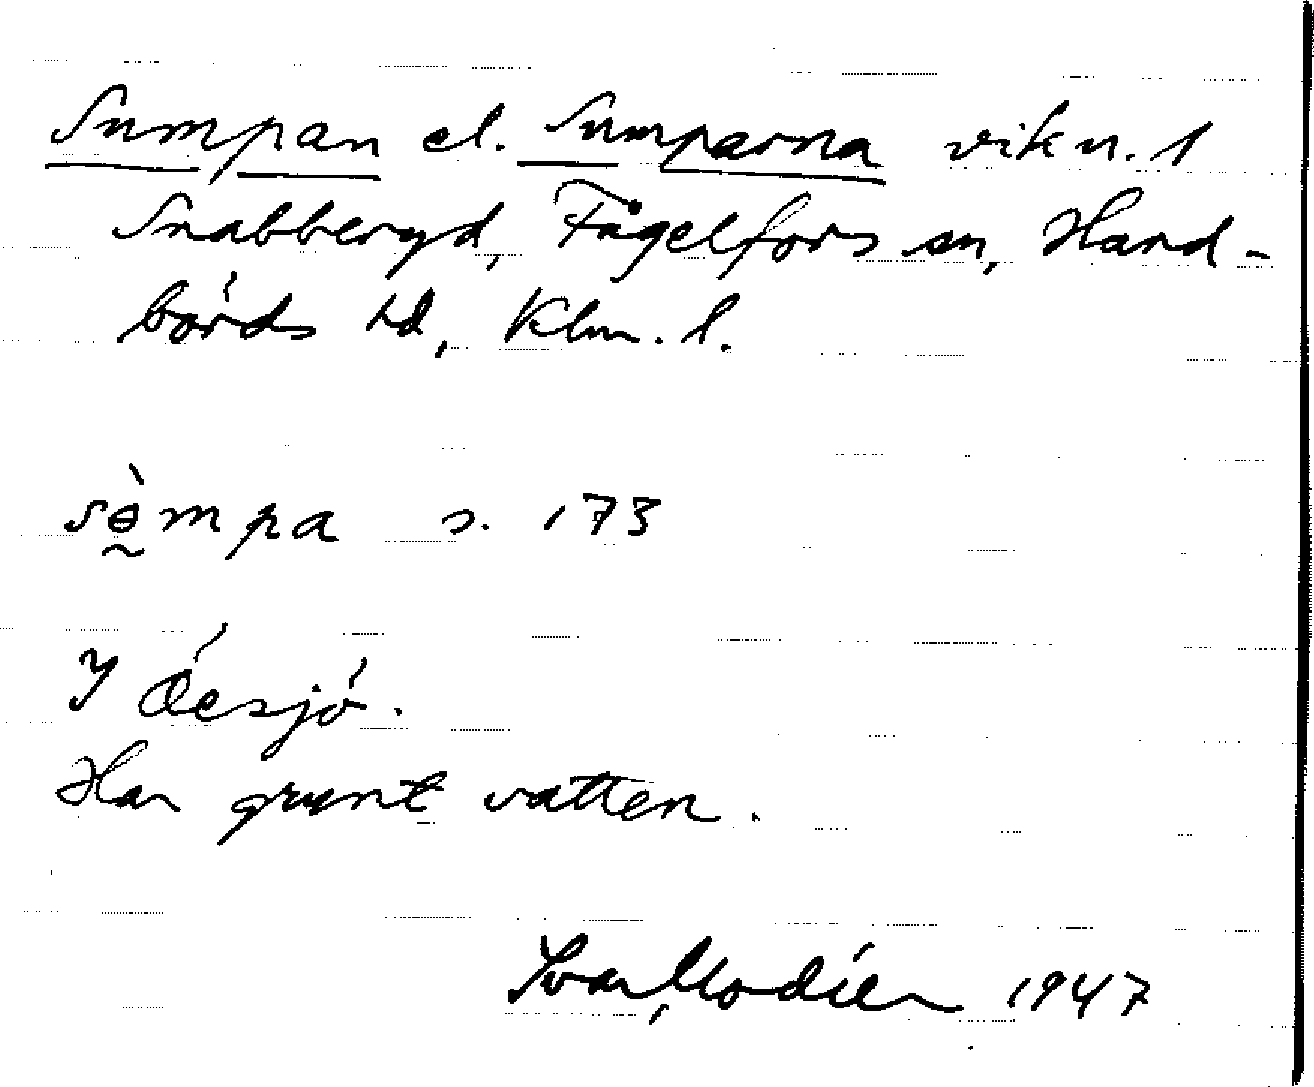 Sumpan el. Sumparna vik n. 1
Snabberyd, Fågelfors sn, Hand-
börds hd, Klm. l.
sɵ̀mpa s. 173
I Öesjö.
Har grunt vatten.
Ivar Modéer 1947